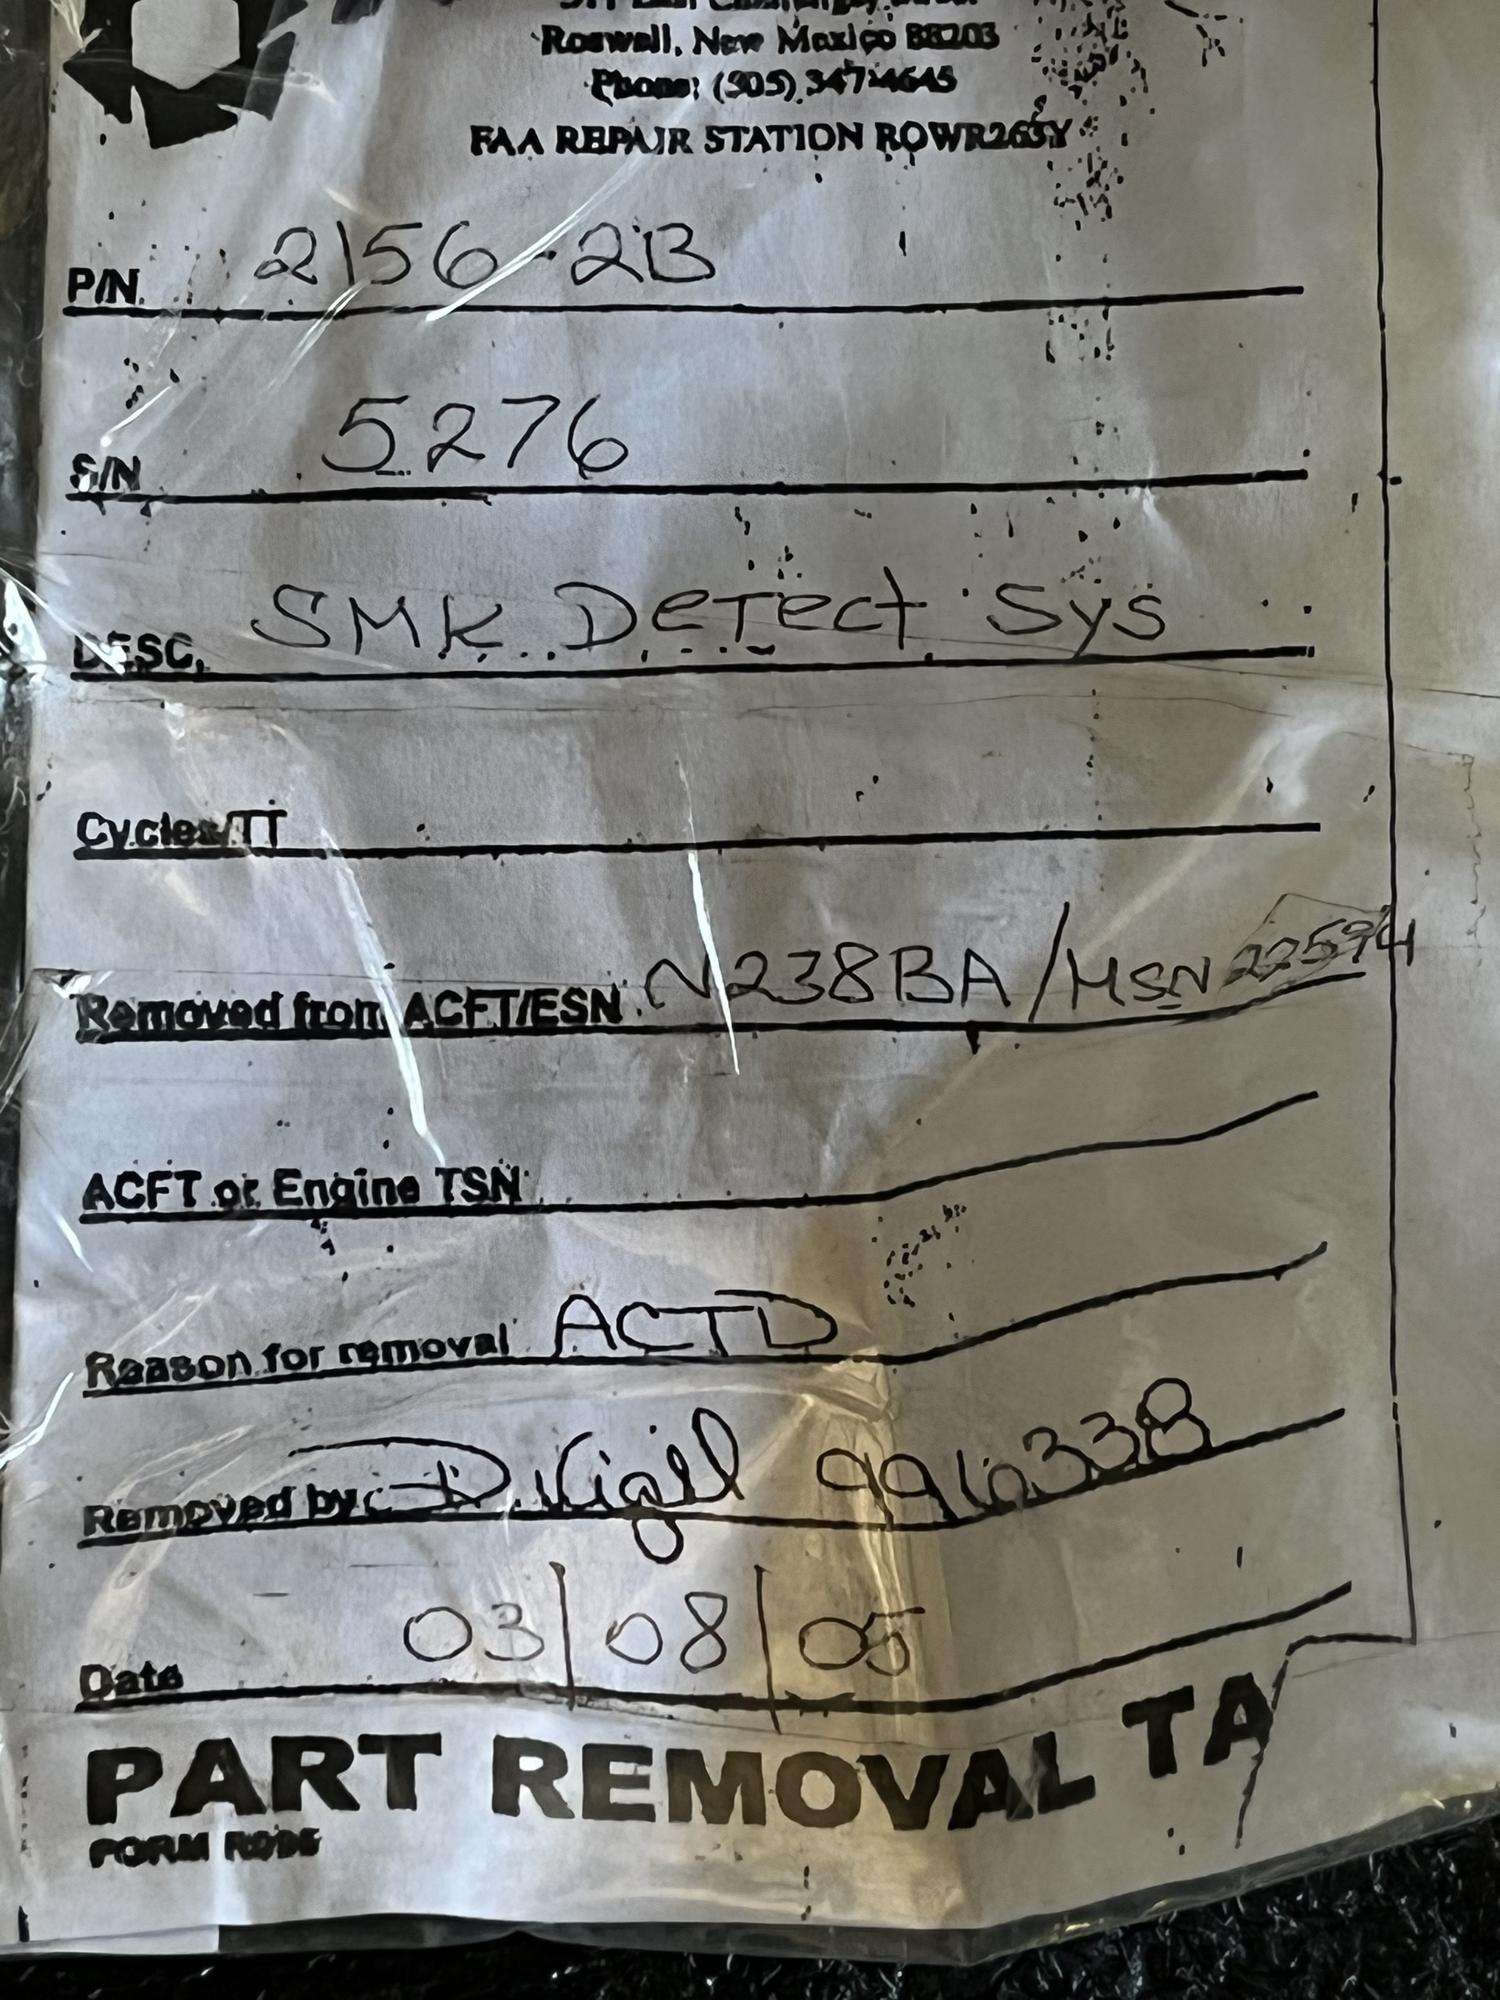 Roswell, New Mexico 88203
Phone: (505) 347-4645
FAA REPAIR STATION ROWR263Y
P/N 2156-2B
S/N 5276
DESC. SMK Detect Sys
Cycles/TT
Removed from ACFT/ESN N238BA/MSN 22594
ACFT or Engine TSN
Reason for removal ACTD
Removed by D. Vigil 9910338
Date 03/08/05
PART REMOVAL TA
FORM